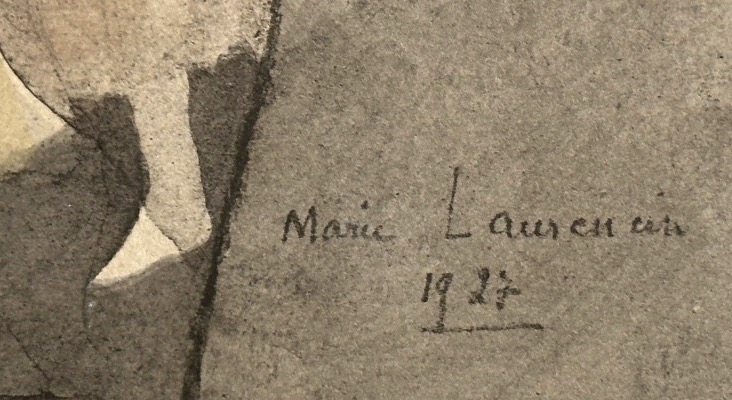 Marie Laurencin
1927